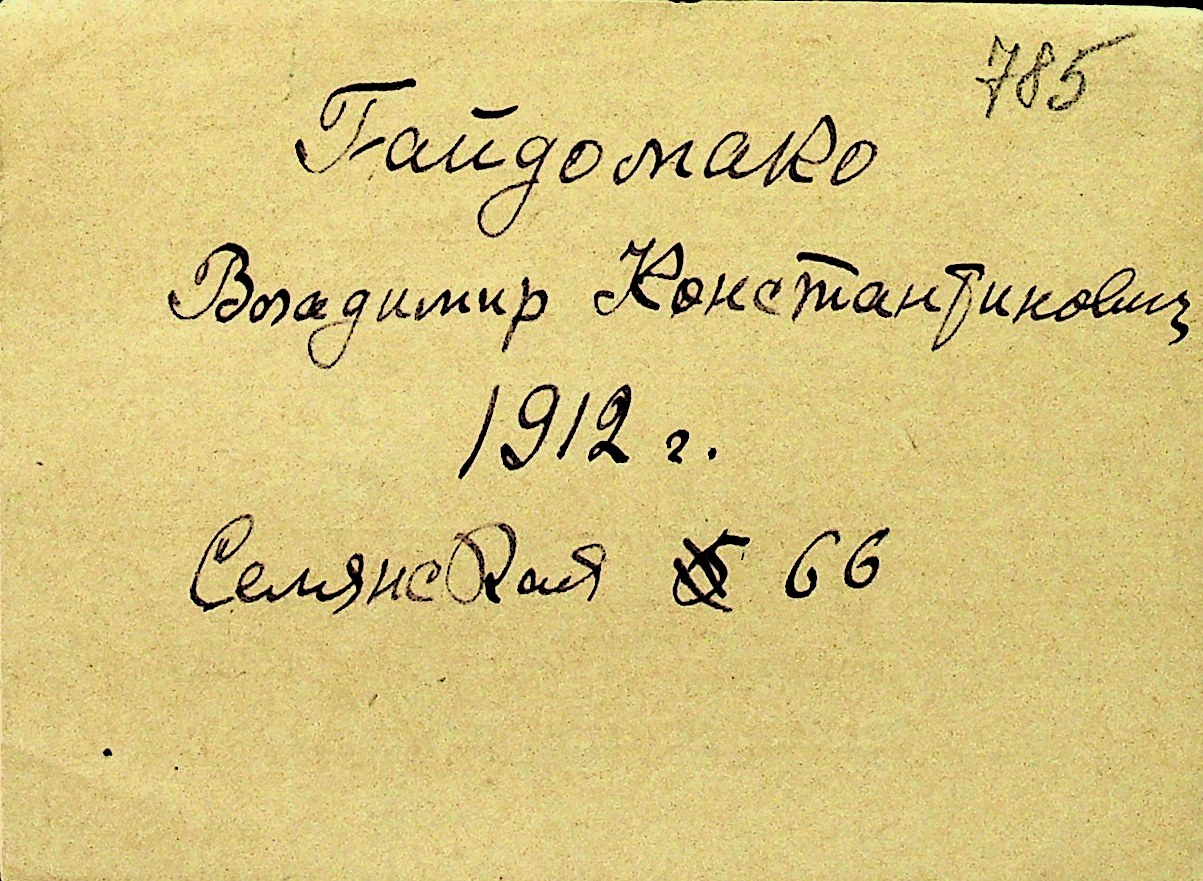 785
Гайдомако
Владимир Константинович
1912 г.
Селянская 66